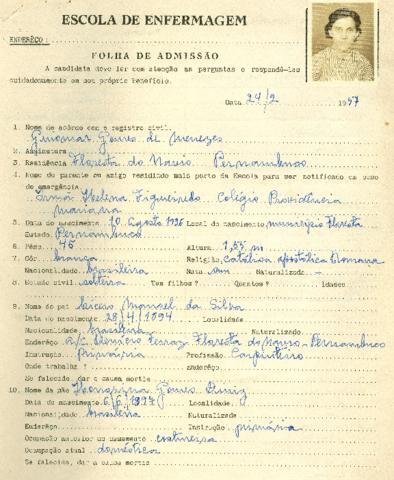 ESCOLA DE ENFERMAGEM
ENDERÊÇO:
FOLHA DE ADMISSÃO
A candidata deve ler com atenção as perguntas e respondê-las
cuidadosamente em seu próprio benefício.
Data 24/2 1957
1. Nome de acôrdo com o registro civil:
Guiomar Gomes de Menezes
2. Assinatura
3. Residência Floresta do Navio Pernambuco
4. Nome do parente ou amigo residindo mais perto da Escola para ser notificado em caso
de emergência.
Irmã Helena Figueiredo. Colégio Providência
Mariana
5. Data do nascimento 10 Agosto 1936 Local do nascimento município Floresta
Estado Pernambuco
6. Pêso: 46 Altura 1,55 m
7. Côr: branca Religião católica apostólica Romana
Nacionalidade brasileira Nata sim Naturalizada -
8. Estado civil solteira Tem filhos? Quantos? Idades
9. Nome do pai Cícero Manoel da Silva
Data do nascimento 28/4/1894 Localidade
Nacionalidade brasileira Naturalizado
Enderêço a/c Ferraz Floresta do Navio-Pernambuco
Instrução Primária Profissão Carpinteiro
Onde trabalha? enderêço
Se falecido dar a causa mortis
10. Nome da mãe Gomes Diniz
Data do nascimento 6/6/1897 Localidade
Nacionalidade brasileira Naturalizada
Enderêço Instrução primária
Ocupação anterior ao casamento
Ocupação atual doméstica
Se falecida, dar a causa mortis